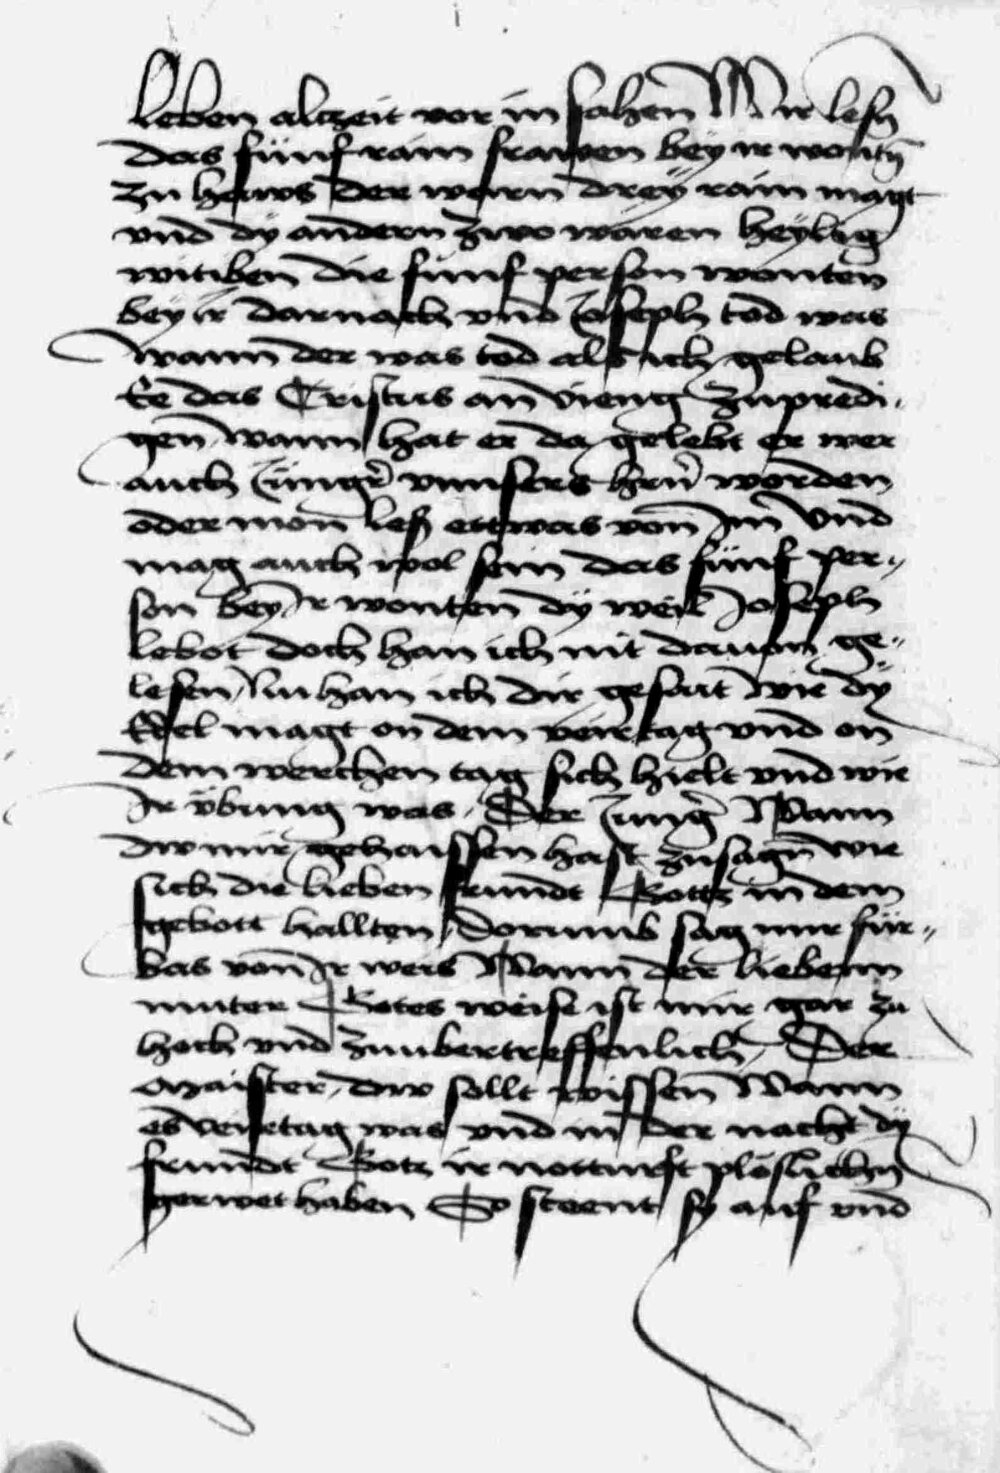 leben alczeit vor in sahen Wir lesn̄
das fünf rain frawen bey ir wontn̄
zu haws der warn drey rain magt
vnd dy andern zwo waren heylig
witiben die fünf person wonten
bey ir darnach vnd Joseph tod was
wann der was tod als ich gelaub
Ee das Cristus an vieng zupredi-
gen wann hat er da gelebt er wer
auch Junger vnnsers hrn̄ worden
oder mon les ettwas von Im Vnd
mag auch wol sein das fünf per-
son bey Ir wonten dy weil Joseph
lebot doch han ich nit dauon ge-
lesen Nu han ich dir gesait wie dy
Edel magt on dem veirtag vnd on
dem werchen tag sich hielt vnd wie
Ir übung was. Der Junger Wann
dw mir gehaissen hast zusagn̄ wie
sich die lieben frundt Gottz in dem
gebott hallten dorumb sag mir für-
bas von Ir weis Wann der liebenn
muter Gotes weise ist mir gar zu
hoch vnd zuubertreffenlich. Der
Maister, dw sollt wissen Wann
es veirtag was vnd in der nacht dy
frundt Gotz ir notturft plöslichn̄
gerwet haben So steent sy auf vnd